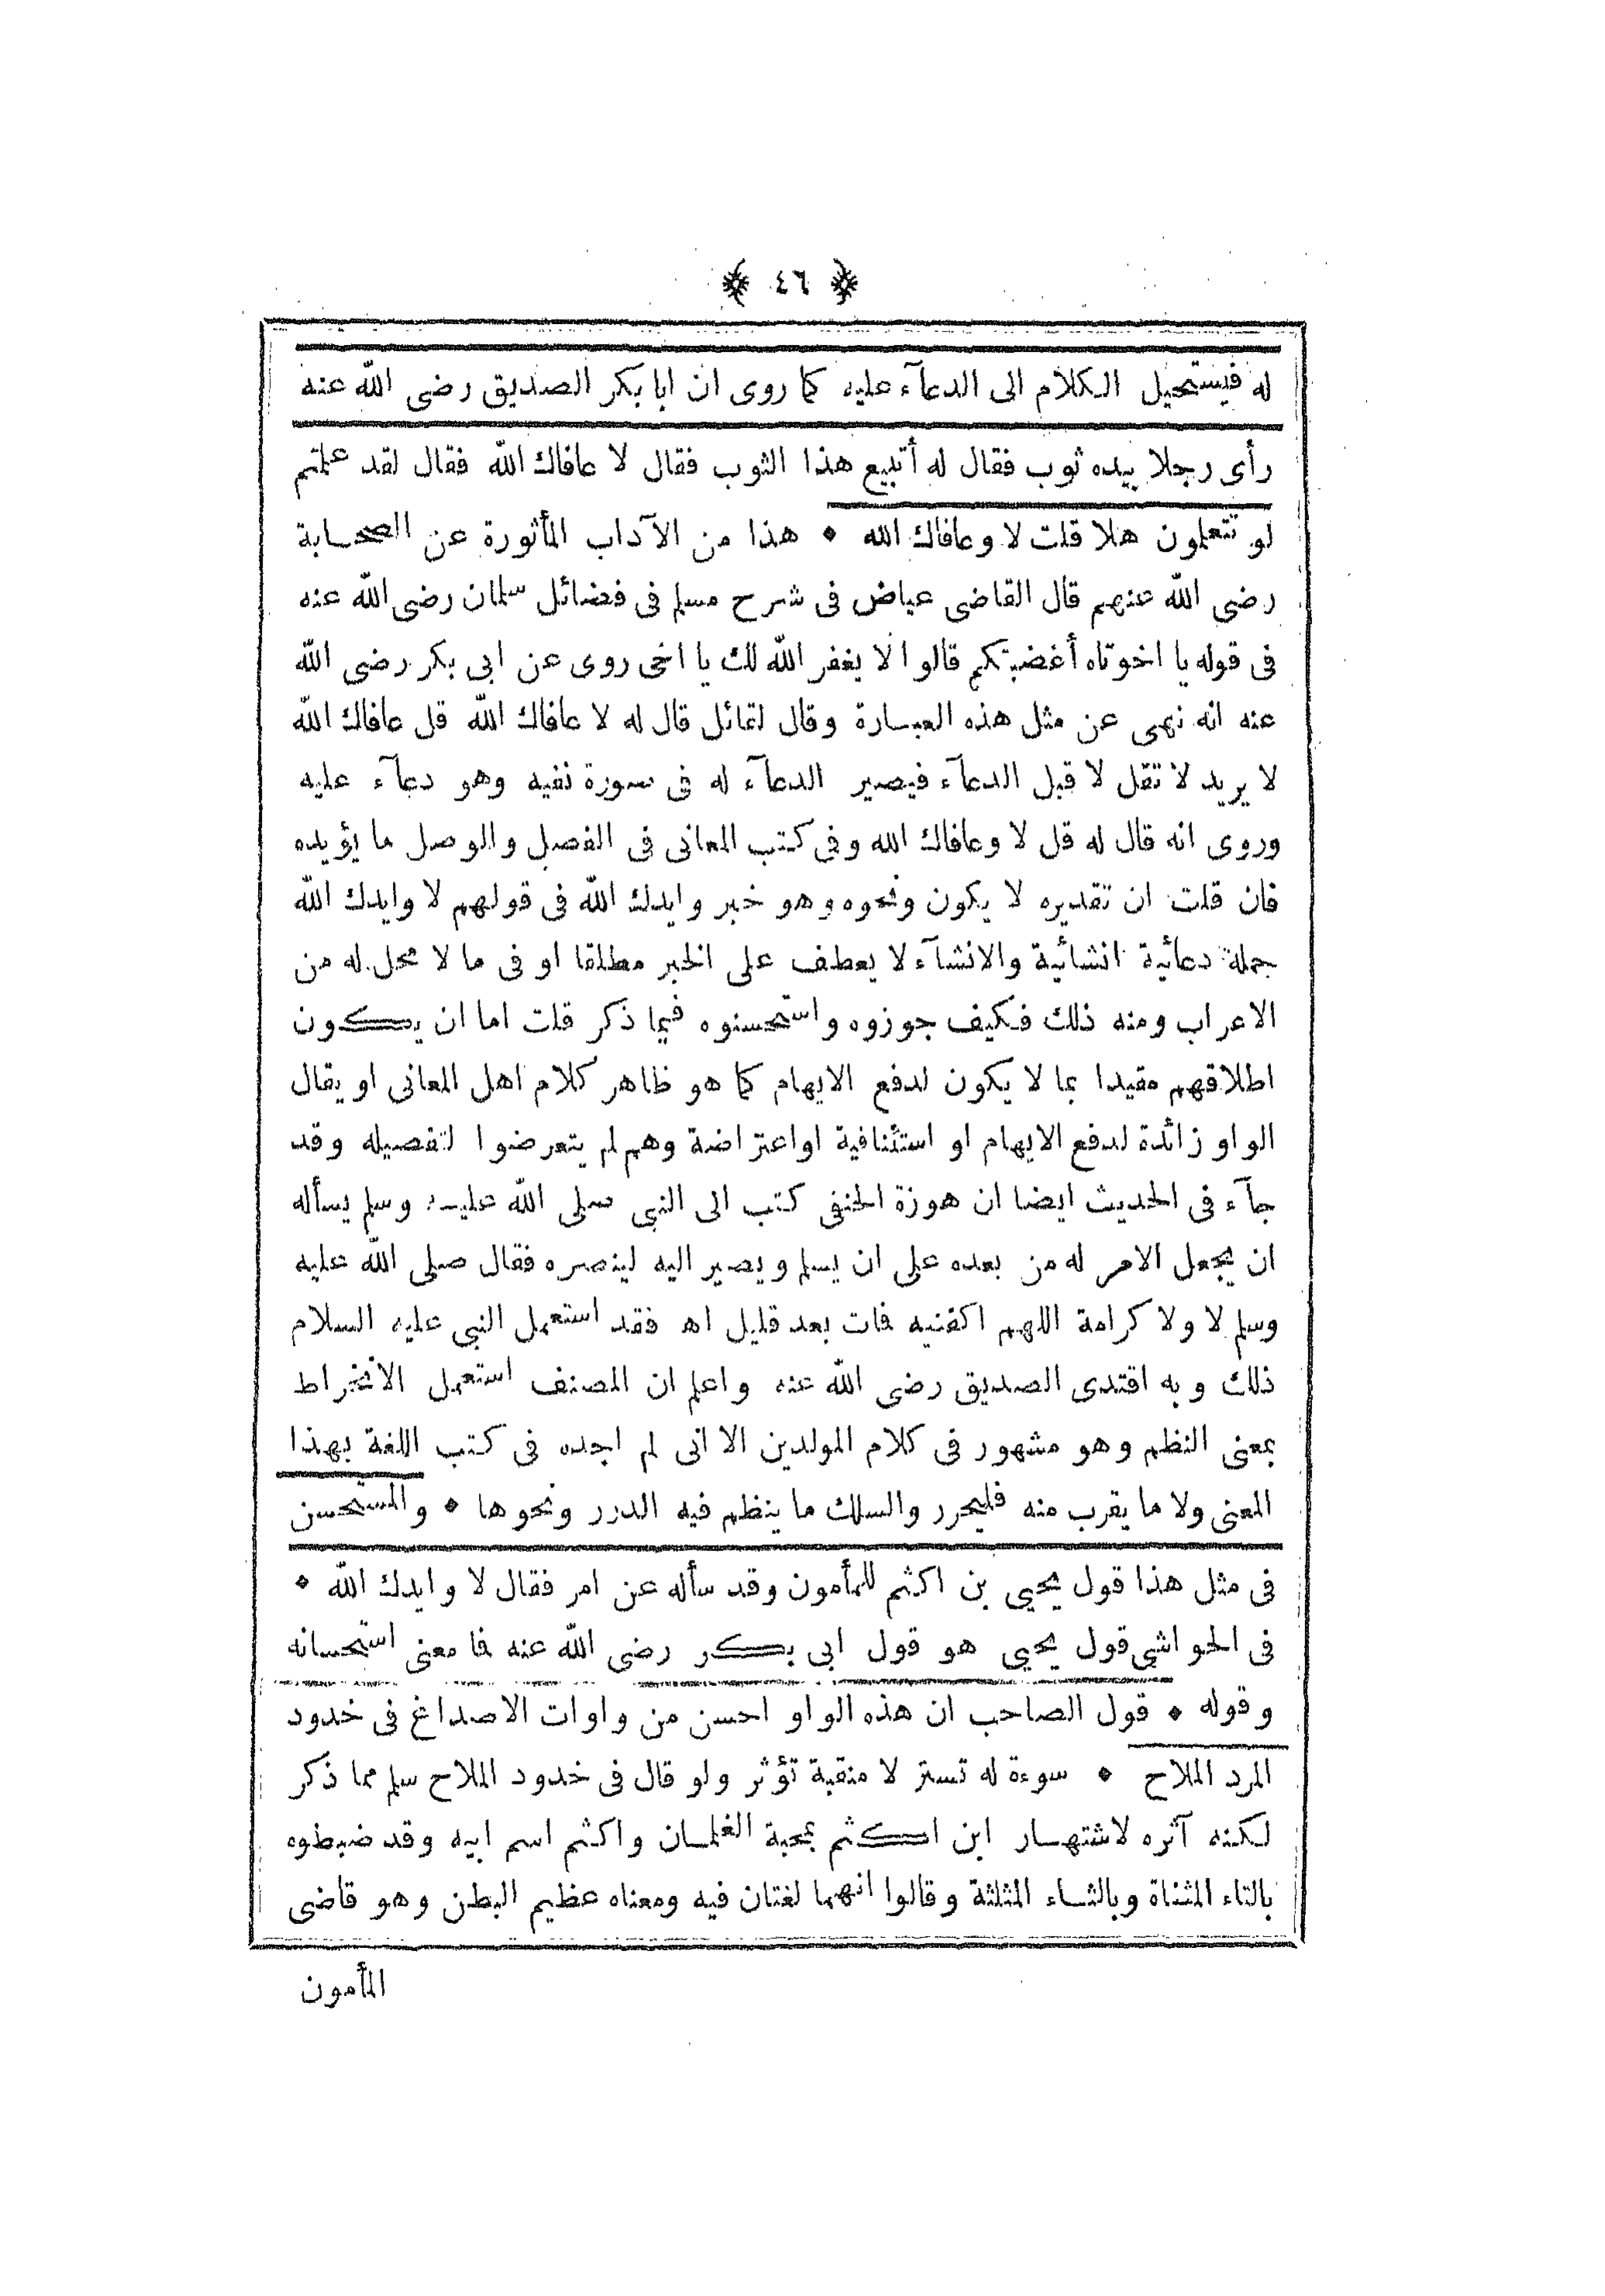 ﴿ ٤٦ ﴾
له فيستحيل الكلام الى الدعآء عليه كما روى ان ابا بكر الصديق رضى الله عنه
رأى رجلا بيده ثوب فقال له أتبيع هذا الثوب فقال لا عافاك الله فقال لقد علمتم
لو تتعلمون هلا قلت لا وعافاك الله * هذا من الآداب المأثورة عن الصحابة
رضى الله عنهم قال القاضى عياض فى شرح مسلم فى فضائل سلمان رضى الله عنه
فى قوله يا اخوتاه أغضبتكم قالوا لا يغفر الله لك يا اخى روى عن ابى بكر رضى الله
عنه انه نهى عن مثل هذه العبارة وقال لقائل قال له لا عافاك الله قل عافاك الله
لا يريد لا تقل لا قبل الدعآء فيصير الدعآء له فى صورة نفيه وهو دعآء عليه
وروى انه قال له قل لا وعافاك الله وفى كتب المعانى فى الفصل والوصل ما يؤيده
فان قلت ان تقديره لا يكون ونحوه وهو خبر وايدك الله فى قولهم لا وايدك الله
جملة دعائية انشائية والانشآء لا يعطف على الخبر مطلقا او فى ما لا محل له من
الاعراب ومنه ذلك فكيف جوزوه واستحسنوه فيما ذكر قلت اما ان يكون
اطلاقهم مقيدا بما لا يكون لدفع الايهام كما هو ظاهر كلام اهل المعانى او يقال
الواو زائدة لدفع الايهام او استئنافية او اعتراضة وهم لم يتعرضوا لتفصيله وقد
جآء فى الحديث ايضا ان هوزة الحنفى كتب الى النبى صلى الله عليه وسلم يسأله
ان يجعل الامر له من بعده على ان يسلم ويصير اليه لينصره فقال صلى الله عليه
وسلم لا ولا كرامة اللهم اكفنيه فمات بعد قليل اه فقد استعمل النبى عليه السلام
ذلك وبه اقتدى الصديق رضى الله عنه واعلم ان المصنف استعمل الانخراط
بمعنى النظم وهو مشهور فى كلام المولدين الا انى لم اجده فى كتب اللغة بهذا
المعنى ولا ما يقرب منه فليحرر والسلك ما ينظم فيه الدرر ونحوها * والمستحسن
فى مثل هذا قول يحيى بن اكثم للمأمون وقد سأله عن امر فقال لا وايدك الله *
فى الحواشى قول يحيى هو قول ابى بكر رضى الله عنه فما معنى استحسانه
وقوله * قول الصاحب ان هذه الواو احسن من واوات الاصداغ فى خدود
المرد الملاح * سوءة له تستر لا منقبة تؤثر ولو قال فى خدود الملاح سلم مما ذكر
لكنه آثره لاشتهار ابن اكثم بمحبة الغلمان واكثم اسم ابيه وقد ضبطوه
بالتاء المثناة وبالثاء المثلثة وقالوا انهما لغتان فيه ومعناه عظيم البطن وهو قاضى
المأمون